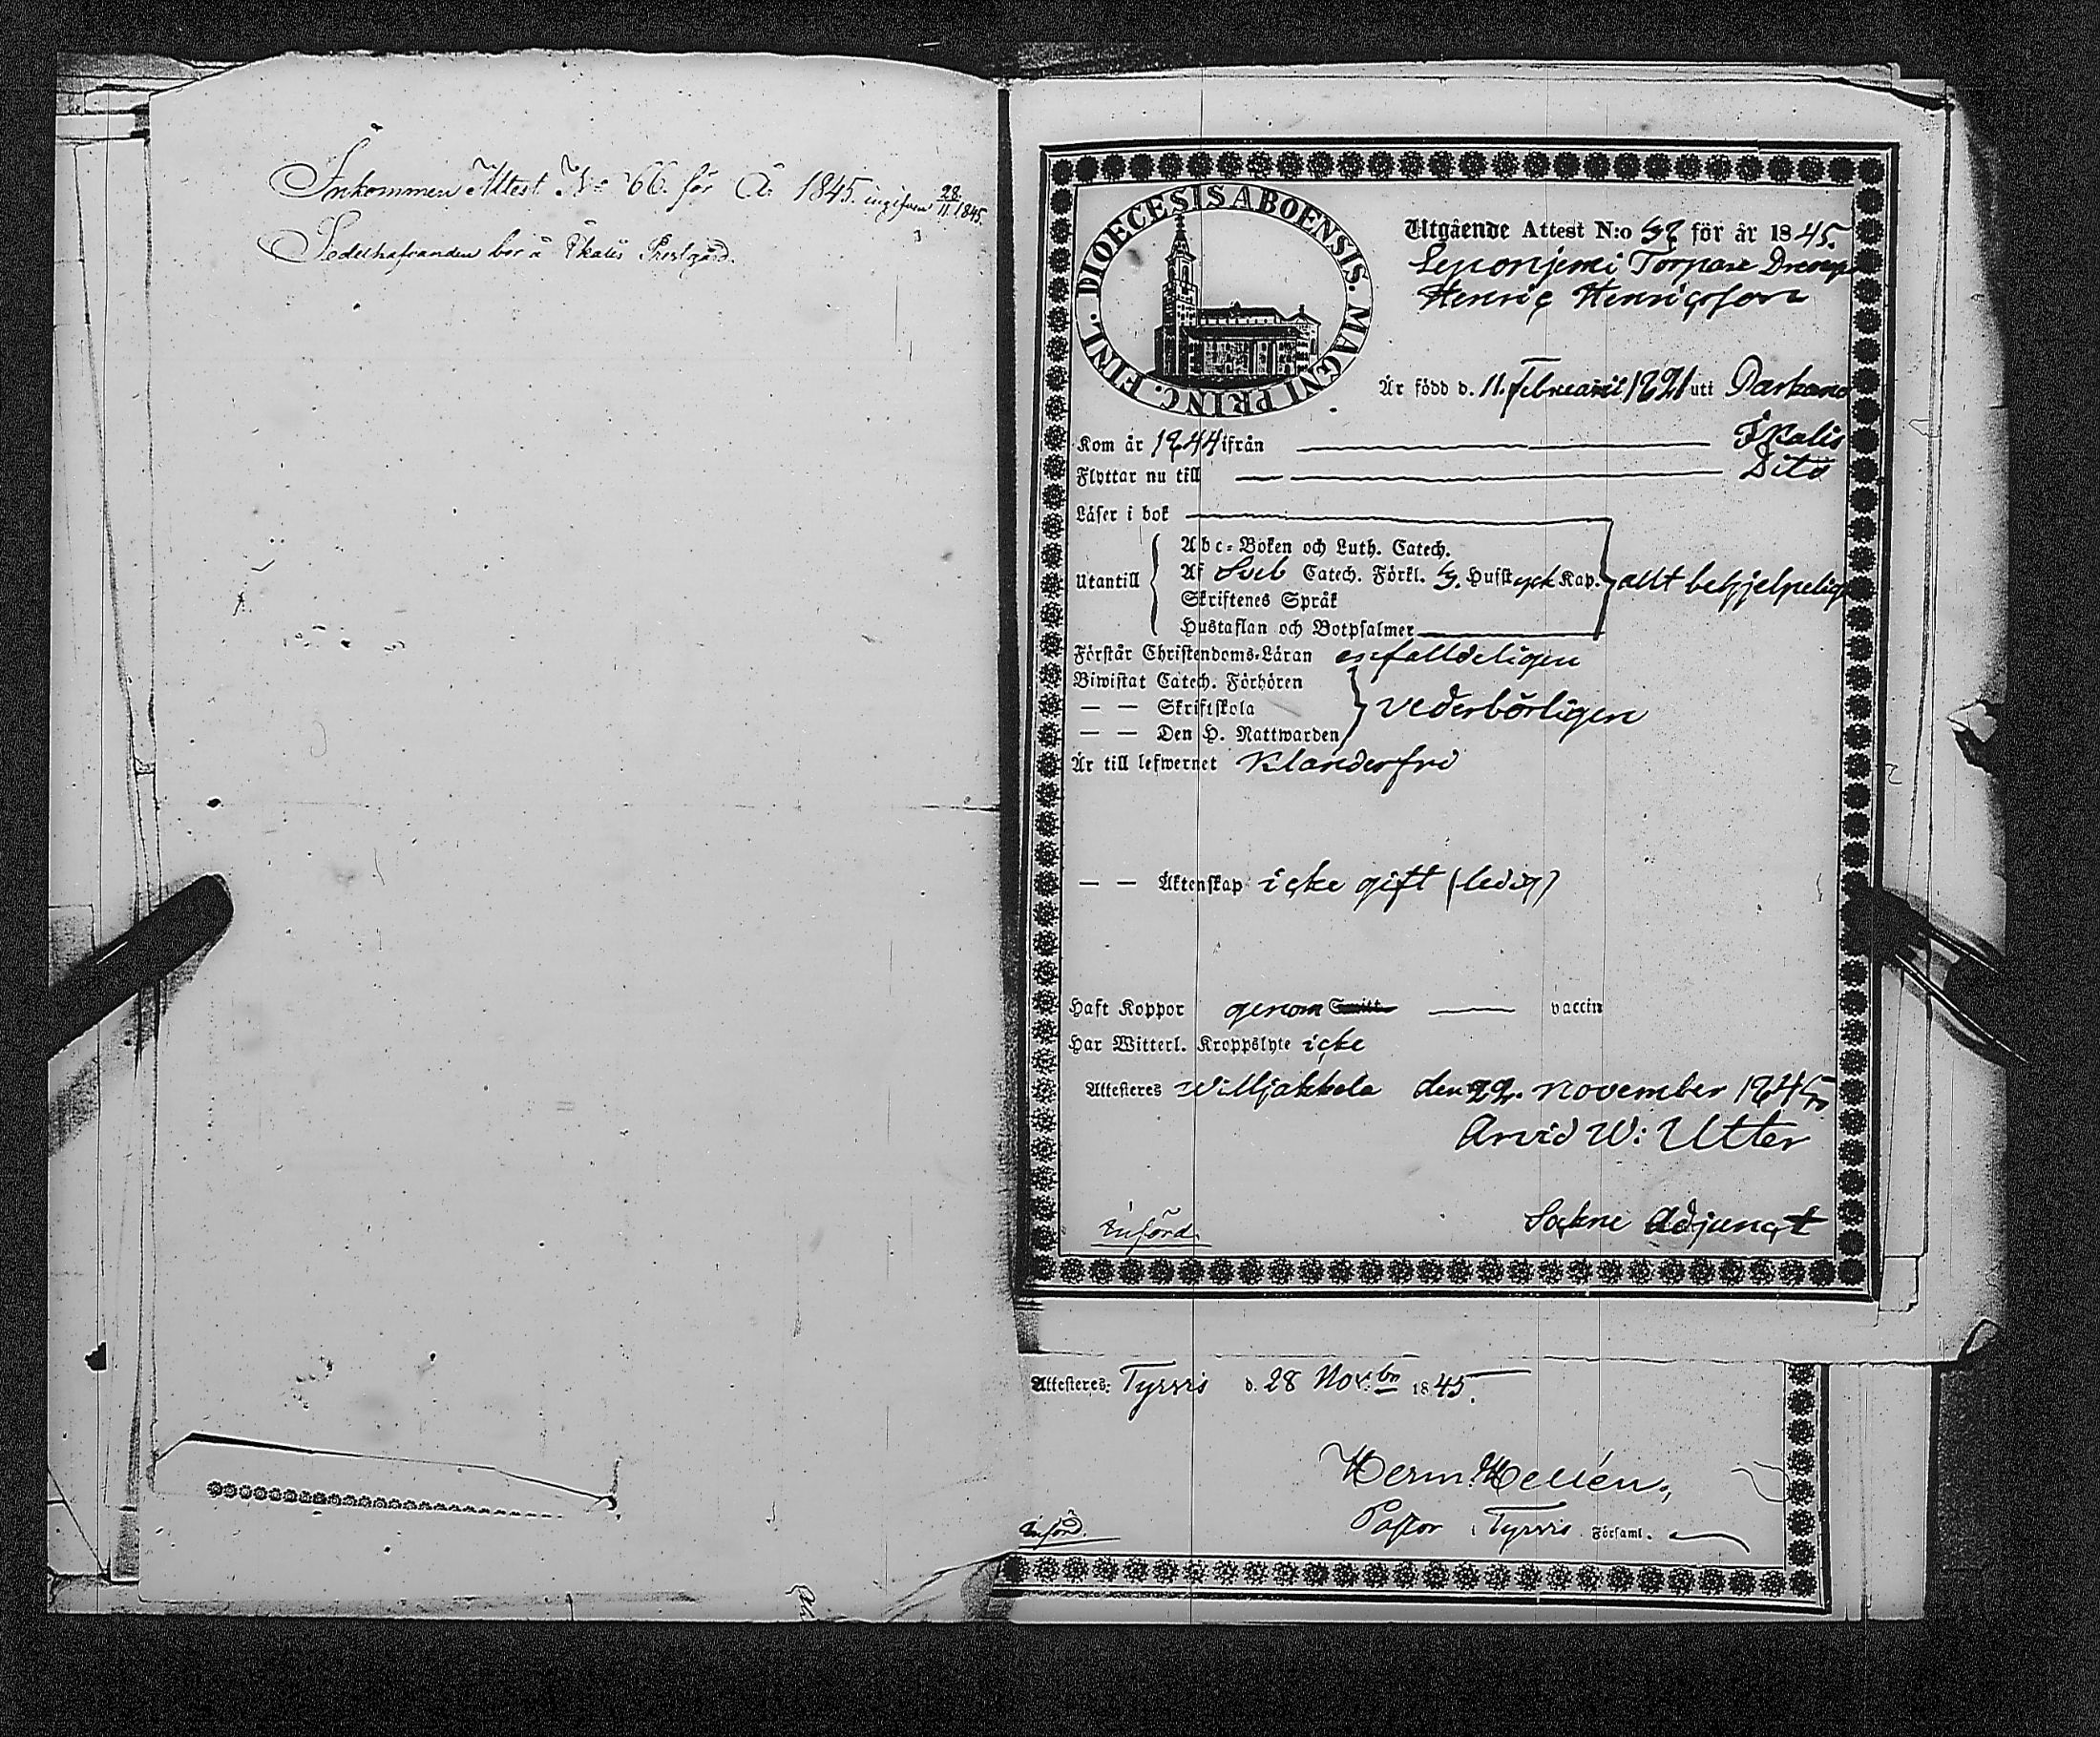 Inkommen Attest No 66. för År 1845. ingifven 28/11 1845
Sedelhafvanden bor å Ikalis Prestgård.
DIOECESIS ABOENSIS. MAGNI PRINC. FINL.
Utgående Attest N:o för år 1845.
Torpare Dreng
Henric Henricsson
Är född d. 11. Februarii 1821 uti Parkano
Kom år 1844 ifrån Ikalis
Flyttar nu till Dito
Läser i bok
Utantill
Abc-Boken och Luth. Catech.
Af Sveb Catech. Förkl. 5. Hufstyck Kap. allt behjelpeligt
Skriftenes Språk
Hustaflan och Botpsalmer
Förstår Christendoms-Läran enfalldeligen
Biwistat Catech. Förhören
— — Skriftskola vederbörligen
— — Den H. Nattwarden
Är till lefwernet Klanderfri
— — Äktenskap icke gift (ledig)
Haft Koppor genom Smitt vaccin
Har Witterl. Kroppslyte icke
Attesteres Willjakkala den 22. November 1845
Arvid W: Utter
Sockne Adjunct
Införd.
Attesteres: Tyrvis d. 28 Nov:br 1845.
Herm. Hellén,
Pastor i Tyrvis Församl.
Införd.